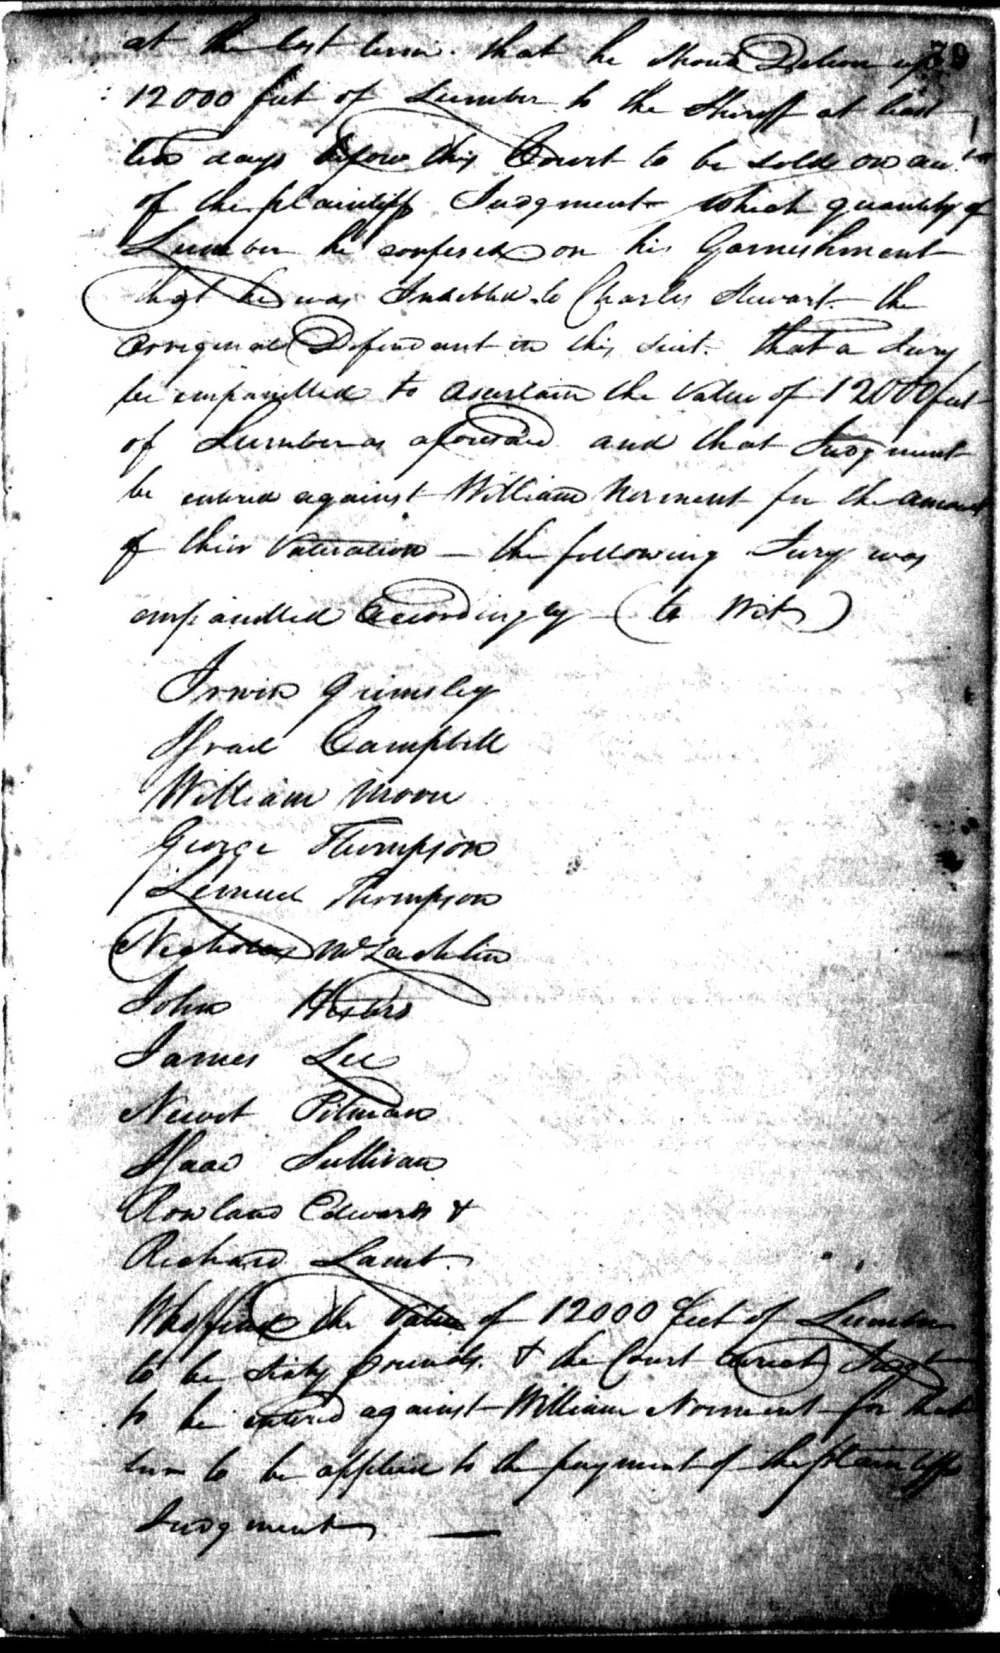 79
at the last term that he should Deliver up
12000 feet of Lumber to the Sheriff at least
ten days before this Court to be sold on
of the plaintiffs Judgment which quantity of
Lumber he confesed on his Garneshment
that he was Indebted to Charles Stewart the
orriginal Defendant in this suit. that a Jury
be empanelled to ascertain the value of 12000 feet
of Lumber as aforesaid and that Judgment
be entered against William Norment for the amount
of their Valuation — the following Jury was
empanelled accordingly (to Wit)
Irwin Grimsley
Israel Campbell
William Moore
George Thompson
Lemuel Thompson
Nicholas McLachlin
John
James Lee
Newit Pitman
Isaac Sullivan
Rowland Edwards &
Richard Lamb.
Who find the Value of 12000 feet of Lumber
to be sixty pounds. & the Court direct Judgt
to be entered against William Norment for that
sum to be applied to the payment of the plaintiffs
Judgment —